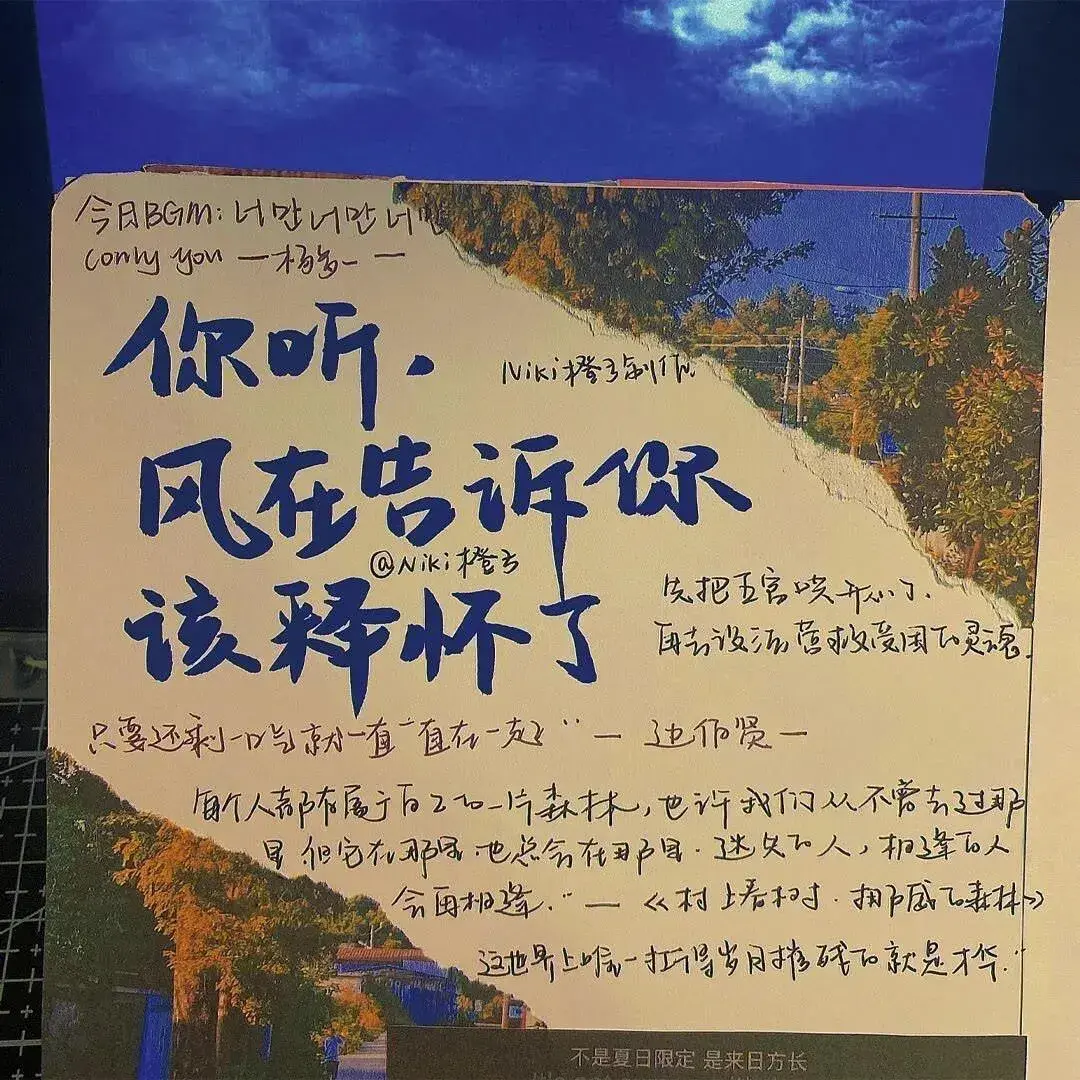 今日BGM：너만너만너만
(only you — 杨多一 —
你听，
Niki橙子制作
风在告诉你
@Niki橙子
该释怀了
先把五官哄开心了.
再去设法营救受困的灵魂.
只要还剩一口气就一直一直在一起" — 边伯贤 —
每个人都有属于自己的一片森林，也许我们从不曾去过那
里 但它在那里.也总会在那里.迷失的人，相逢的人
会再相逢." — 《村上春树.挪威的森林》
这世界上唯一扛得岁月摧残的就是才华."
不是夏日限定 是来日方长